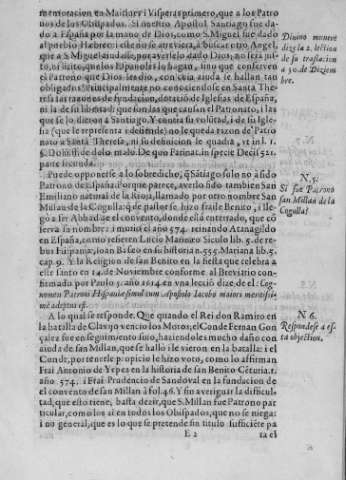 memoracion en Maitines i Visperas primero, que a los Patro
nos de los Obispados. Si nuestro Apostol Santiago fue da-
do a España por la mano de Dios, como S. Miguel fue dado
al pueblo Hebreo: i este no se atreviera, a buscar otro Angel,
que a S. Miguel añadiese, por averselo dado Dios,
el Patrono que Dios les dio, con cuia aiuda se hallan tan
obligados? Principalmente no conociendose en Santa The-
resa las razones de fundacion, dotacion de Iglesias de España,
ni la de su libertad: que son las que causan el Patronato, i las
que se lo dieron a Santiago. Y contra su volutad, i de su Igle
sia (que le representa i defiende) no le queda razon de Patro
nato a Santa Theresa, ni su definicion le quadra,
parte segunda.
Puede oponerse a lo sobredicho, q̃ Sãtiago solo no a sido
Patrono de España. Porque parece, averlo sido tambien San
Emiliano natural de la Rioja, llamado por otro nombre San
Millan de la Cogulla: q̃ de pastor se hizo fraile Benito, i lle-
gò a ser Abbad de el convento, donde està enterrado, que cõ
serva su nombre: i murio el año 574. reinando Atanagildo
en España, como refieren Lucio Marineo Siculo lib. 5. de re-
bus Hispaniæ, Ioan Baseo en su historia n. 555. Mariana lib. 5.
cap. 9. Y la Religion de san Benito en la fiesta que celebra a
este santo en 12. de Noviembre conforme al Breviario con-
firmado por Paulo 5. año 1614 en una leciõ dize de el: Cog-
nomen Patroni Hispaniæ simul cum Apostolo Iacobo maiore meritissi-
mè adeptus est.
A lo qual se responde. Que quando el Rei don Ramiro en
la batalla de Clavijo vencio los Moros, el Conde Fernan Gon
çalez fue en seguimiento suio, haciendoles mucho daño con
aiuda de san Millan, que se hallò i le vieron en la batalla: i el
Conde, por tenerle propicio le hizo voto, como lo affirman
Frai Antonio de Yepes en la historia de san Benito Cẽturia 1.
año 574. i Frai Prudencio de Sandoval en la fundacion de
el convento de san Millan à fol. 46. Y sin averiguar la dificul-
tad, que esto tiene, basta dezir, que S. Millan fue Patrono par
ticular, como los ai en todos los Obispados, que no se niega:
i no general, que es lo que se pretende sin titulo suficiẽte pa
E 2
ra el
Divino
dize la 2. lection
de su traslacion
a 30. de Diziem
bre.
N. 5.
Si fue Patrono
san Millan de la
Cogulla?
N 6.
Respondese a es-
ta objection.